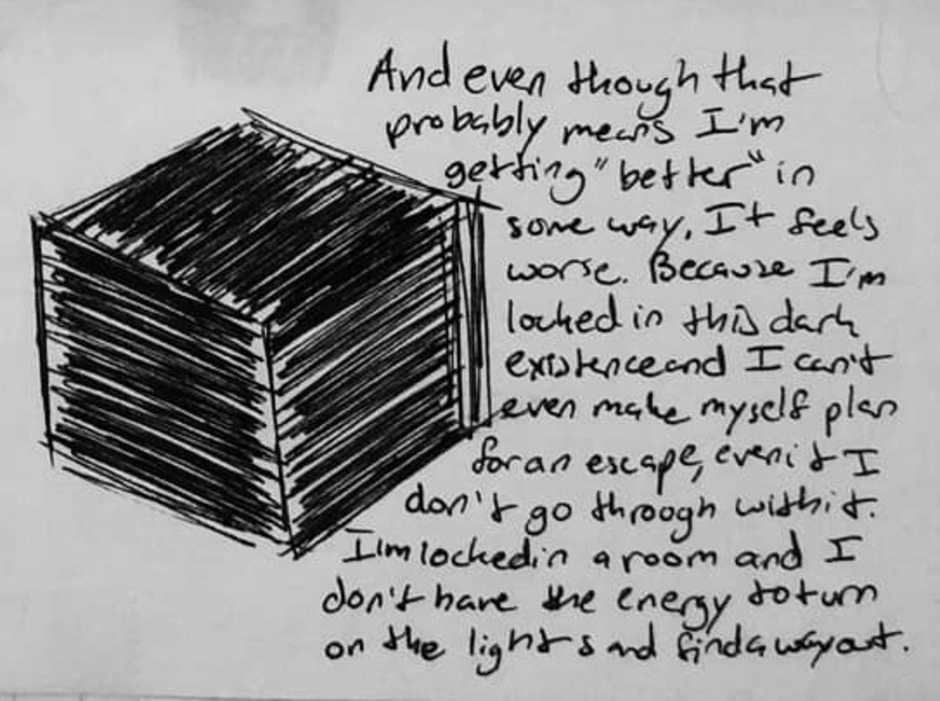 And even though that
probably means I'm
getting "better" in
some way, It feels
worse. Because I'm
locked in this dark
existence and I can't
even make myself plan
for an escape, even if I
don't go through with it.
I'm locked in a room and I
don't have the energy to turn
on the lights and find a way out.